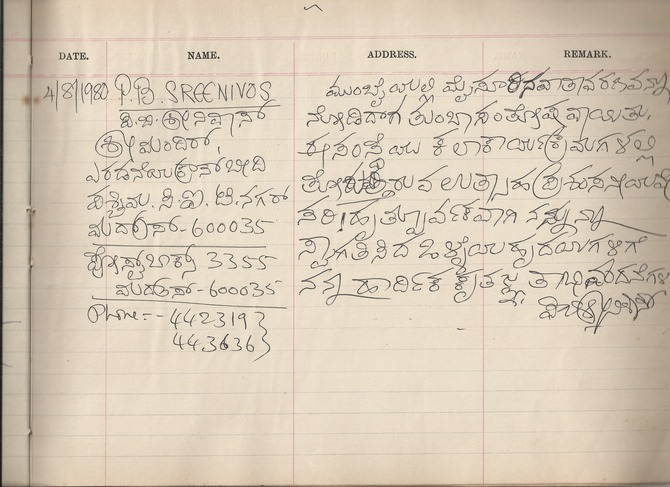 DATE. NAME. ADDRESS. REMARK.
4/8/1980 P.B. SREENIVOS
ಪಿ.ಬಿ. ಶ್ರೀನಿವಾಸ್
ಶ್ರೀ ಮಂದಿರ್,
ಎರಡನೆಯ ಕ್ರಾಸ್ ಬೀದಿ
ಪಶ್ಚಿಮ. ಸಿ.ಐ.ಟಿ. ನಗರ್
ಮದ್ರಾಸ್-600035
ಪೋಸ್ಟ್ ಬಾಕ್ಸ್ 3355
ಮದ್ರಾಸ್-600035
Phone:- 442319}
443636}
ಮುಂಬೈಯಲ್ಲಿ ಮೈಸೂರಿನ ವಾತಾವರಣವನ್ನು
ನೋಡಿದಾಗ ತುಂಬಾ ಸಂತೋಷವಾಯಿತು.
ಈ ಸಂಸ್ಥೆಯ ಕಲಾಕಾರ್ಯಕ್ರಮಗಳಲ್ಲಿ
ತೋರುತ್ತಿರುವ ಉತ್ಸಾಹ ಪ್ರಶಂಸನೀಯವೇ
ಸರಿ! ಹೃತ್ಪೂರ್ವಕವಾಗಿ ನನ್ನನ್ನು
ಸ್ವಾಗತಿಸಿದ ಒಳ್ಳೆಯ ಹೃದಯಗಳಿಗೆ
ನನ್ನ ಹಾರ್ದಿಕ ಕೃತಜ್ಞತಾಭಿವಂದನೆಗಳು